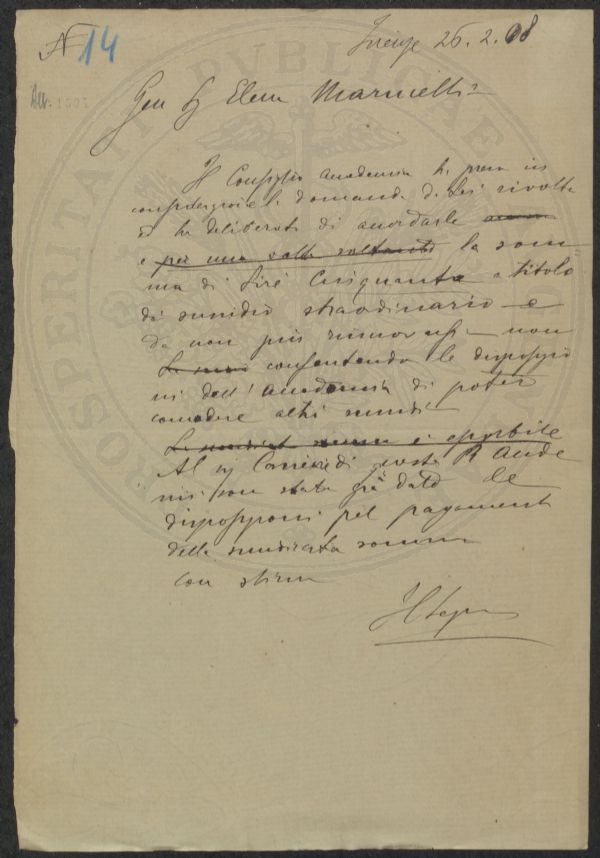 N 14
Firenze 26.2.08
Gen Sg Elena Marucelli
Il Consiglio Accademia ha preso in
considerazione la domanda da Lei rivolta
ed ha deliberato di accordarle
e per una volta soltanto la som-
ma di Lire Cinquanta a titolo
di sussidio straordinario e
da non più rinnovarsi non
consentendo le disposizio
ni dell'Accademia di poter
concedere altri sussidi
La suindicata somma è esigibile
Al sig di questa R Accade
mia son state già date le
disposizioni pel pagamento
della suindicata somma
con stima